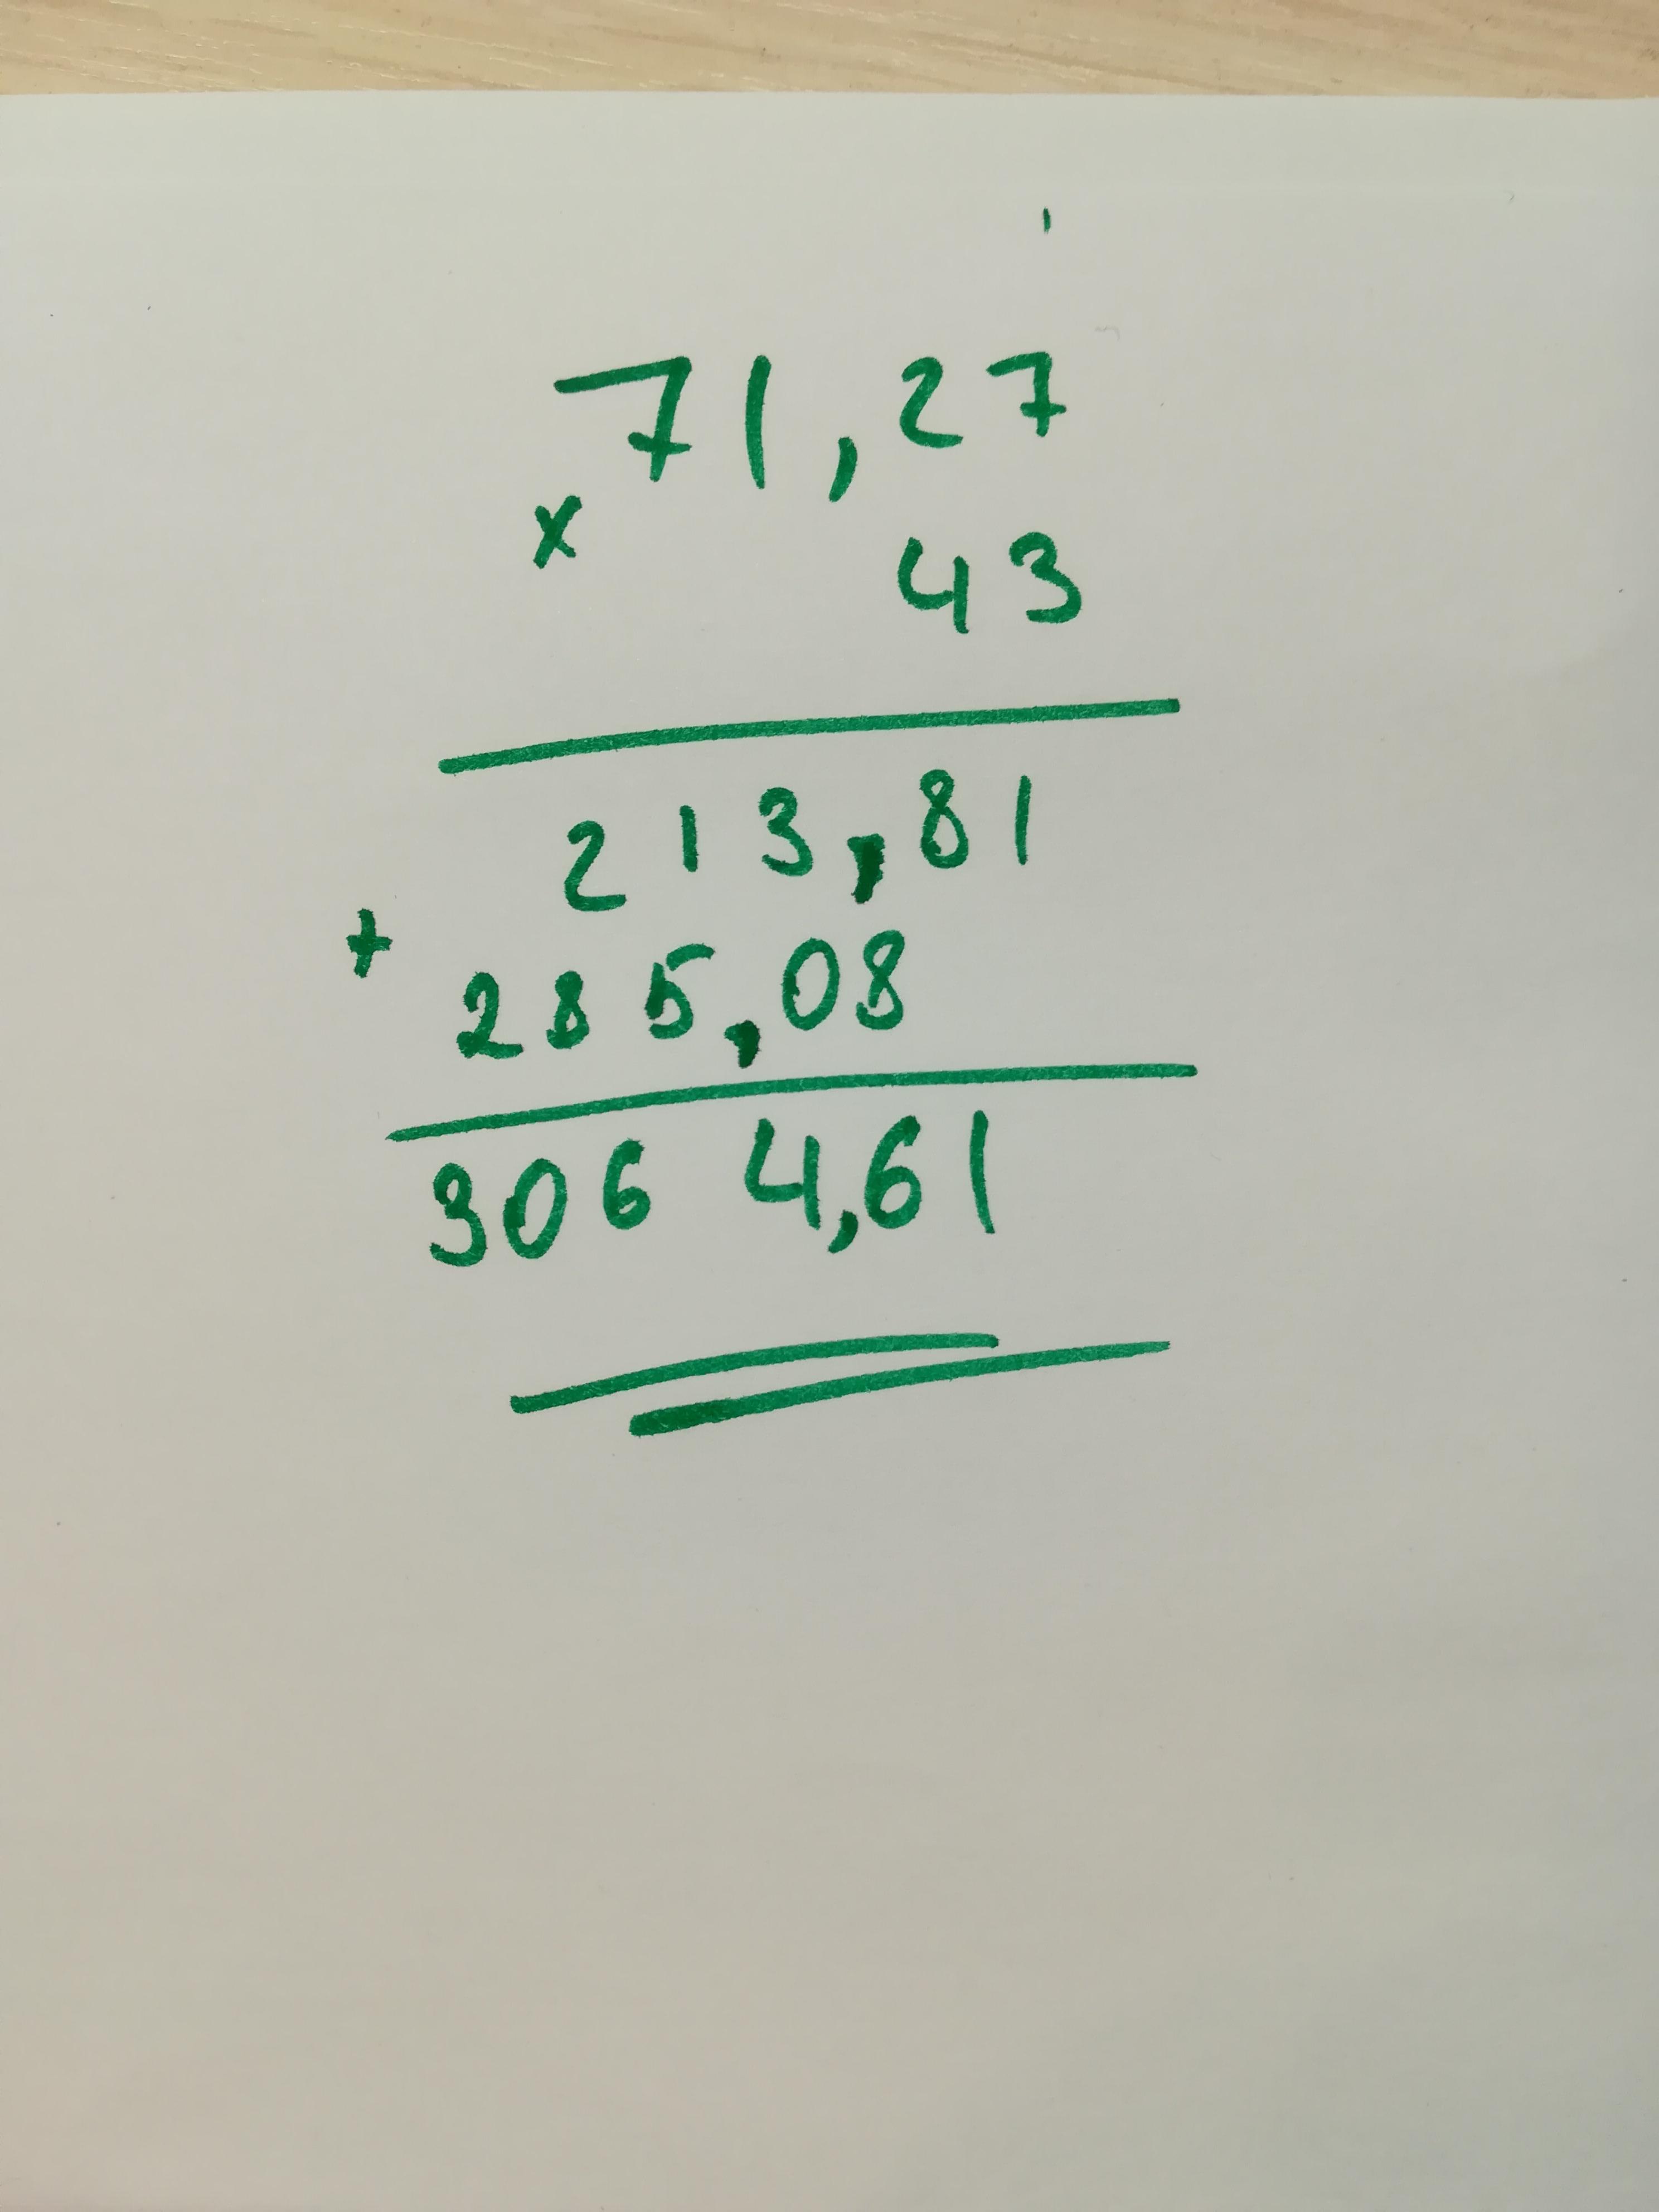 71,27
x 43
213,81
+ 285,08
3064,61